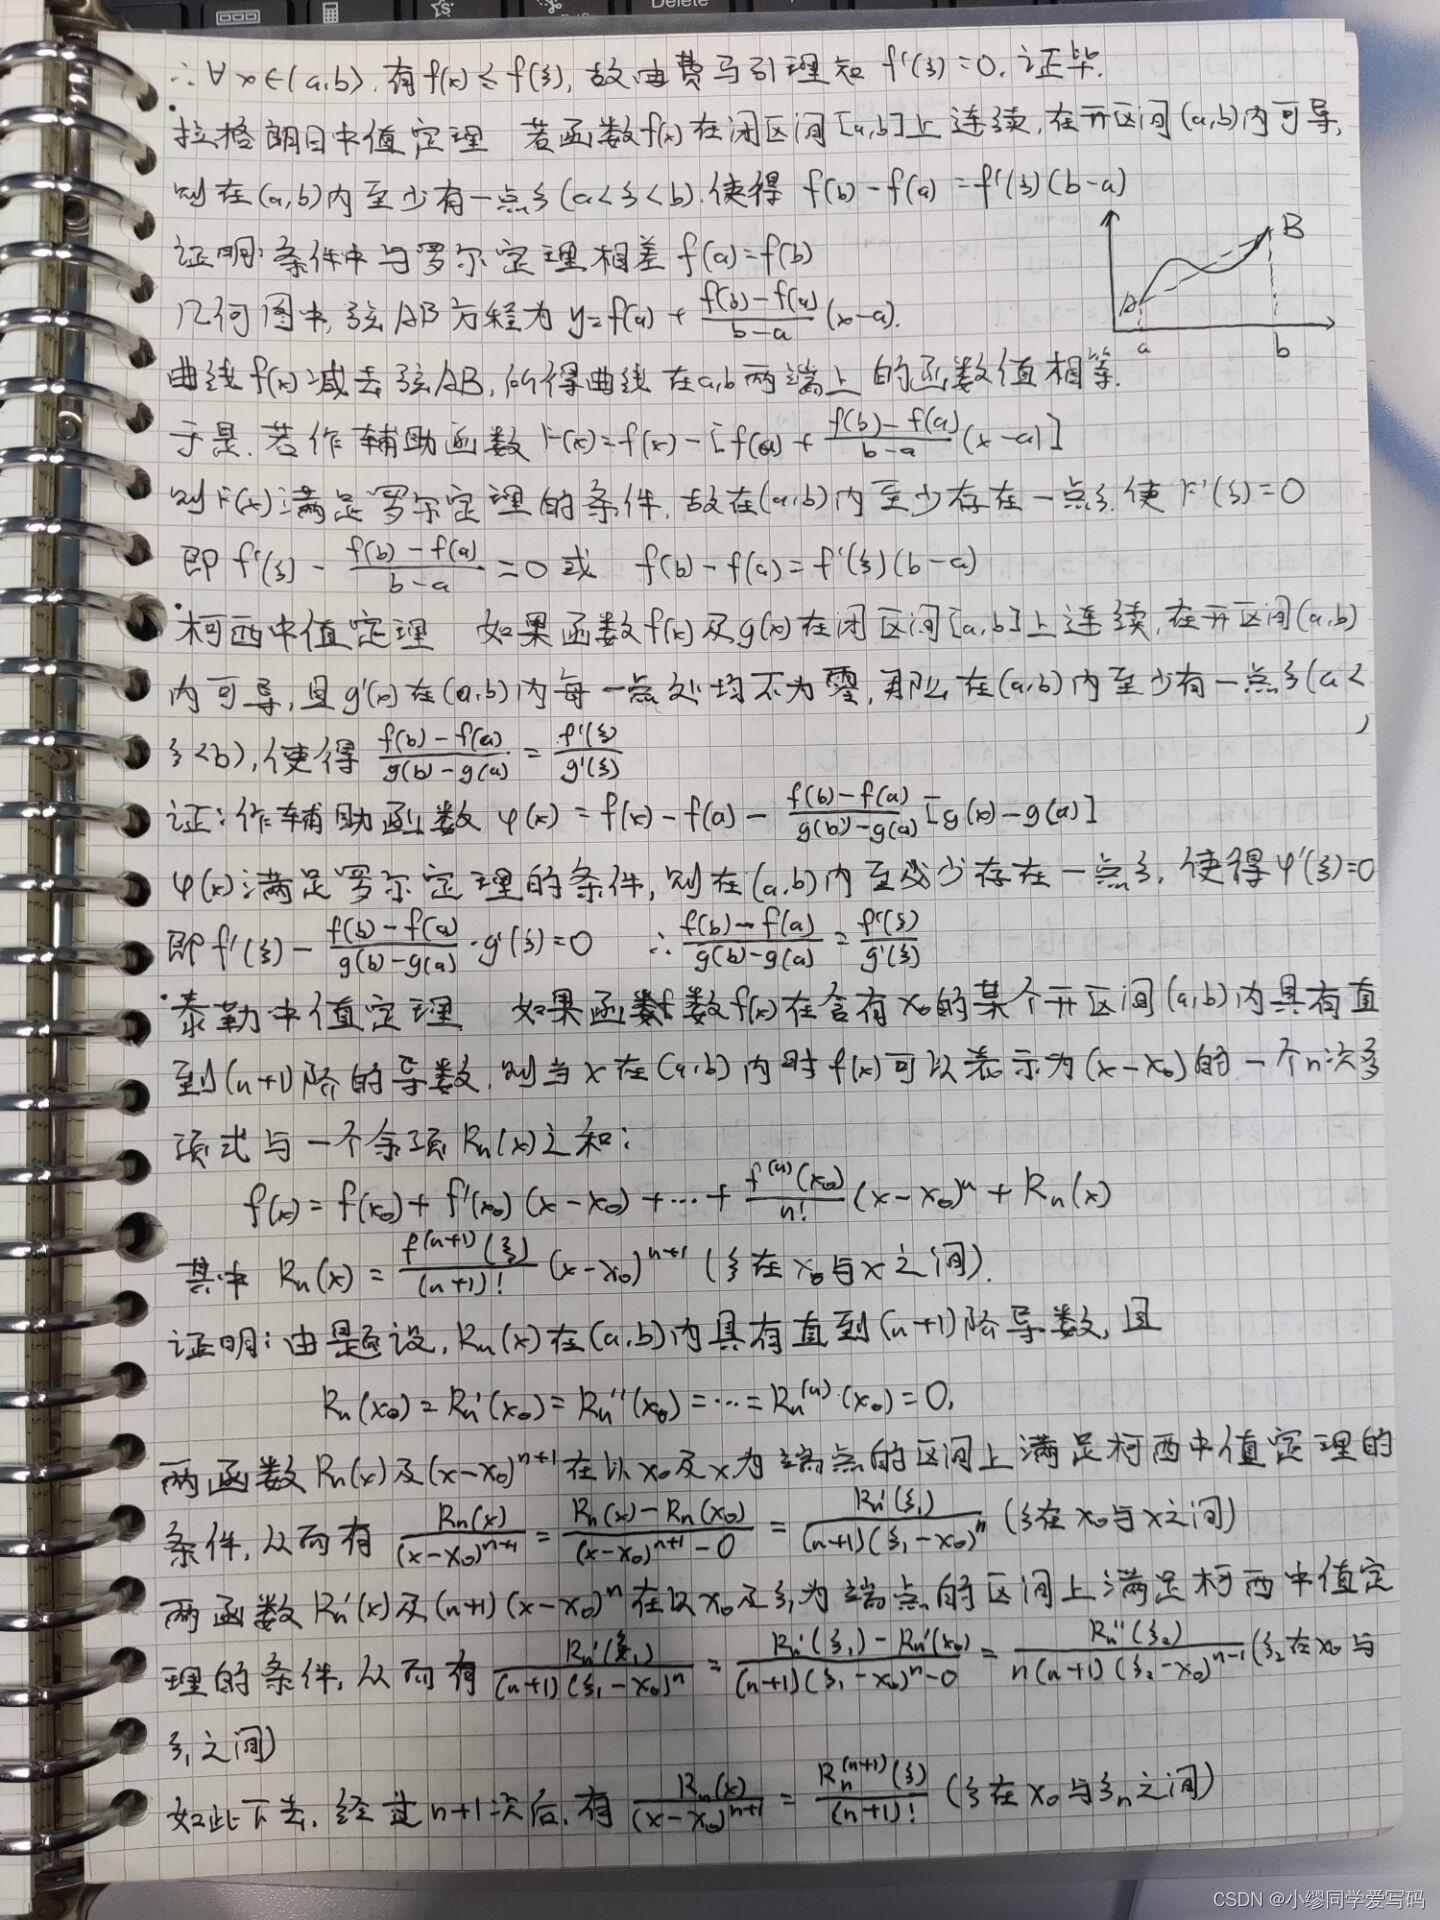 Delete
∴∀x∈(a,b),有f(x)≤f(ξ),故由费马引理知 f'(ξ)=0.证毕.
·拉格朗日中值定理 若函数f(x)在闭区间[a,b]上连续,在开区间(a,b)内可导,
则在(a,b)内至少有一点ξ(a<ξ<b).使得 f(b)-f(a)=f'(ξ)(b-a)
证明:条件中与罗尔定理相差f(a)=f(b)
几何图中,弦AB方程为y=f(a)+\frac{f(b)-f(a)}{b-a}(x-a).
A B a b
曲线f(x)减去弦AB,所得曲线在a,b两端上的函数值相等.
于是.若作辅助函数F(x)=f(x)-[f(a)+\frac{f(b)-f(a)}{b-a}(x-a)]
则F(x)满足罗尔定理的条件,故在(a,b)内至少存在一点ξ.使F'(ξ)=0
即f'(ξ)-\frac{f(b)-f(a)}{b-a}=0或 f(b)-f(a)=f'(ξ)(b-a)
·柯西中值定理 如果函数f(x)及g(x)在闭区间[a,b]上连续,在开区间(a,b)
内可导,且g'(x)在(a,b)内每一点处均不为零,那么在(a,b)内至少有一点ξ(a<
ξ<b),使得\frac{f(b)-f(a)}{g(b)-g(a)}=\frac{f'(ξ)}{g'(ξ)}
证:作辅助函数φ(x)=f(x)-f(a)-\frac{f(b)-f(a)}{g(b)-g(a)}[g(x)-g(a)]
φ(x)满足罗尔定理的条件,则在(a,b)内至少存在一点ξ,使得φ'(ξ)=0
即f'(ξ)-\frac{f(b)-f(a)}{g(b)-g(a)}·g'(ξ)=0 ∴\frac{f(b)-f(a)}{g(b)-g(a)}=\frac{f'(ξ)}{g'(ξ)}
·泰勒中值定理 如果函数f(x)在含有x₀的某个开区间(a,b)内具有直
到(n+1)阶的导数,则当x在(a,b)内时f(x)可以表示为(x-x₀)的一个n次多
项式与一个余项Rₙ(x)之和:
f(x)=f(x₀)+f'(x₀)(x-x₀)+…+\frac{f^{(n)}(x₀)}{n!}(x-x₀)^n+Rₙ(x)
其中Rₙ(x)=\frac{f^{(n+1)}(ξ)}{(n+1)!}(x-x₀)^{n+1}(ξ在x₀与x之间).
证明:由题设,Rₙ(x)在(a,b)内具有直到(n+1)阶导数,且
Rₙ(x₀)=Rₙ'(x₀)=Rₙ''(x₀)=…=Rₙ^{(n)}(x₀)=0,
两函数Rₙ(x)及(x-x₀)^{n+1}在以x₀及x为端点的区间上满足柯西中值定理的
条件,从而有\frac{Rₙ(x)}{(x-x₀)^{n+1}}=\frac{Rₙ(x)-Rₙ(x₀)}{(x-x₀)^{n+1}-0}=\frac{Rₙ'(ξ₁)}{(n+1)(ξ₁-x₀)^n}(ξ在x₀与x之间)
两函数Rₙ'(x)及(n+1)(x-x₀)^n在以x₀及ξ₁为端点的区间上满足柯西中值定
理的条件,从而有\frac{Rₙ'(ξ₁)}{(n+1)(ξ₁-x₀)^n}=\frac{Rₙ'(ξ₁)-Rₙ'(x₀)}{(n+1)(ξ₁-x₀)^n-0}=\frac{Rₙ''(ξ₂)}{n(n+1)(ξ₂-x₀)^{n-1}}(ξ₂在x₀与
ξ₁之间)
如此下去,经过n+1次后,有\frac{Rₙ(x)}{(x-x₀)^{n+1}}=\frac{Rₙ^{(n+1)}(ξ)}{(n+1)!}(ξ在x₀与ξₙ之间)
CSDN @小缪同学爱写码